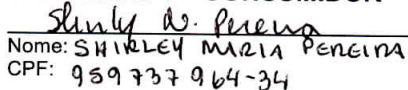 Shirly N. Pereira
Nome: SHIRLEY MARIA PEREIRA
CPF: 959737964-34